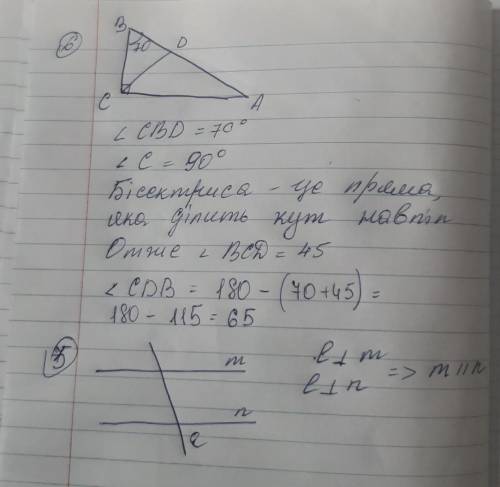 6
B
70
D
C
A
∠ CBD = 70°
∠ C = 90°
Бісектриса - це пряма,
яка ділить кут навпіл
Отже ∠ BCD = 45
∠ CDB = 180 - (70+45) =
180 - 115 = 65
5
m
n
l ⊥ m
l ⊥ n
=> m || n